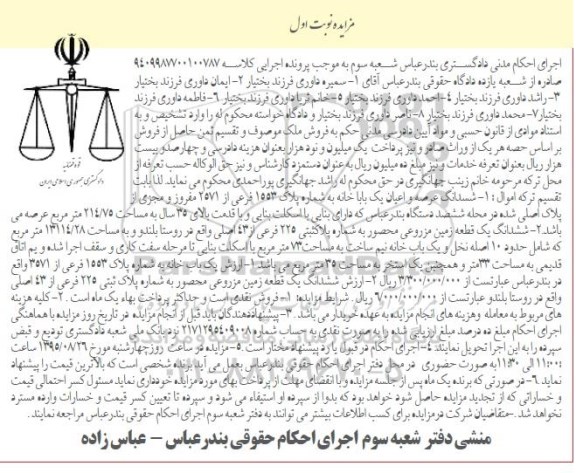 مزایده نوبت اول
اجرای احکام مدنی دادگستری بندرعباس شعبه سوم به موجب پرونده اجرایی کلاسه ۹۴۰۹۹۸۷۷۰۰۱۰۰۷۸۷
صادره از شعبه یازده دادگاه حقوقی بندرعباس آقای ۱- سمیره داوری فرزند بختیار ۲- ایمان داوری فرزند بختیار
۳- راشد داوری فرزند بختیار ۴- احمد داوری فرزند بختیار ۵- خانم ثریا داوری فرزند بختیار ۶- فاطمه داوری فرزند
بختیار ۷- محمد داوری فرزند بختیار ۸- ناصر داوری فرزند بختیار و دادگاه خواسته محکوم له را وارد تشخیص و به
استناد موادی از قانون حسبی و مواد آیین دادرسی مدنی حکم به فروش ملک موصوف و تقسیم ثمن حاصل از فروش
بر اساس حصه هر یک از وراث صادر و نیز پرداخت یک میلیون و نود هزار بعنوان هزینه دادرسی و چهارصد و بیست
هزار ریال بعنوان تعرفه خدمات و نیز مبلغ ده میلیون ریال به عنوان دستمزد کارشناس و نیز حق الوکاله حسب تعرفه از
محل ترکه مرحومه خانم زینب جهانگیری در حق محکوم له راشد جهانگیری پوراحمدی محکوم می نماید. لذا بابت
تقسیم ترکه اموال: ۱- ششدانگ عرصه و اعیان یک بابا خانه به شماره پلاک ۱۵۵۳ فرعی از ۲۵۷۱ مفروز و مجزی از
پلاک اصلی شده در محله ششصد دستگاه بندرعباس که دارای بنایی با اسکلت بنایی و با قدمت بالای ۳۵ سال به مساحت ۲۱۴/۷۵ متر مربع عرصه می
باشد ۲- ششدانگ یک قطعه زمین مزروعی محصور به شماره پلاک ثبتی ۲۲۵ فرعی از ۴۳ اصلی واقع در روستا بلندو و به مساحت ۱۳۱۱۴/۲۸ متر مربع
که شامل حدود ۱۰ اصله نخل و یک باب خانه نیم ساخت به مساحت ۷۳ متر مربع با اسکلت بنایی تا مرحله سفت کاری و سقف اجرا شده و یم اتاق
قدیمی به مساحت ۳۳ متر و همچنین یک استخر به مساحت ۳۵ متر مربع می باشد. ۱- ارزش یک باب خانه به شماره پلاک ۱۵۵۳ فرعی از ۳۵۷۱ واقع
در بندرعباس عبارتست از ۳/۳۰۰/۰۰۰/۰۰۰ ریال ۲- ارزش ششدانگ یک قطعه زمین مزروعی محصور به شماره پلاک ثبتی ۲۲۵ فرعی از ۴۳ اصلی
واقع در روستا بلندو عبارتست از ۷۰۰/۰۰۰/۰۰۰ ریال. شرایط مزایده: ۱- فروش نقدی است و حداکثر پرداخت بهاء یک ماه است. ۲- کلیه هزینه
های مربوط به معامله و هزینه های انجام مزایده به عهده خریدار می باشد. ۳- پیشنهاددهندگان باید قبل از انجام مزایده در تاریخ روز مزایده با هماهنگی
اجرای احکام مبلغ ده درصد مبلغ ارزیابی شده را به صورت نقدی به حساب شماره ۲۱۷۱۲۹۵۴۰۹۰۰۸ نزد بانک ملی شعبه دادگستری تودیع و قبض
سپرده را به این اجرا تحویل نمایند. ۴- اجرای احکام در قبول یا رد پیشنهاد مختار است. ۵- مزایده در ساعت روز چهارشنبه مورخ ۱۳۹۵/۰۸/۲۶ ساعت
۱۱:۰۰ الی ۱۱:۳۰ به صورت حضوری در محل دفتر اجرای احکام حقوقی بندرعباس بعمل می آید برنده شخصی است که بالاترین قیمت را پیشنهاد
نماید. ۶- در صورتی که برنده یک ماه پس از جلسه مزایده و با انقضای مهلت از پرداخت بهای مورد مزایده خودداری نماید مسئول کسر احتمالی قیمت
و خساراتی که از تجدید مزایده حاصل شود خواهد بود که بدوا از سپرده او استیفاء می شود و سپرده تا تعیین کسر قیمت و خسارات وارده مسترد
نخواهد شد. -متقاضیان شرکت در مزایده برای کسب اطلاعات بیشتر می توانند به دفتر شعبه سوم اجرای احکام حقوقی بندرعباس مراجعه نمایند.
منشی دفتر شعبه سوم اجرای احکام حقوقی بندرعباس - عباس زاده
قوه قضائیه
دادگستری جمهوری اسلامی ایران